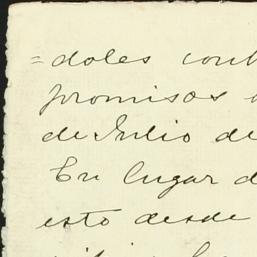 =doles
promisos
de Julio de
En lugar d
esto desde